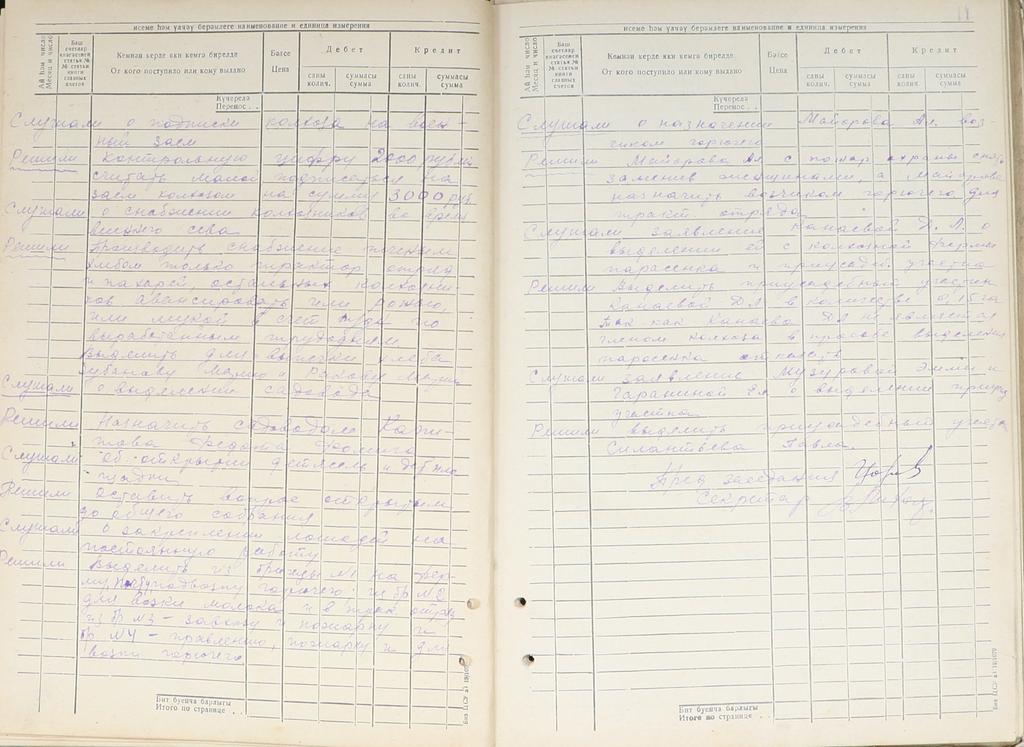 исеме һәм үлчәү берәмлеге наименование и единица измерения
Ай һәм число
Месяц и число
Баш счетлар кнәгәсенең статья №
№ статьи книги главных счетов
Кемнән керде яки кемгә бирелде
От кого поступило или кому выдано
Бәясе
Цена
Дебет
Кредит
саны
колич.
суммасы
сумма
саны
колич.
суммасы
сумма
Күчерелә
Перенос . .
Слушали о подписки колхоза на воен-
ный заем
Решили Контрольную цифру 2000 рублей
считать малой подписаться на
заем колхозом на сумму 3000 руб.
Слушали о снабжении колхозников во время
весеннего сева
Решили Производить снабжение печеным
хлебом только трактор. отряд
и пахарей, остальных колхозни
ков авансировать или рожью,
или мукой в счет
выработанным трудодням
Выделить для выпечки хлеба
Слушали о выделении садовода
Решили Назначить садоводом
Федота
Слушали об открытии детясель и дет пло
щадки
Решили Оставить вопрос открытым
до общего собрания
Слушали о закреплении лошадей на
постоянную работу
Решили Выделить из бригады №1 на фер-
му подвозку горючего: из бр №2
для возки молока и в трак. отряд
из бр №3 – и пожарку и
бр №4 – правлению, пожарку и для
возки горючего
Бит буенча барлыгы
Итого по странице . .
11
исеме һәм үлчәү берәмлеге наименование и единица измерения
Ай һәм число
Месяц и число
Баш счетлар кнәгәсенең статья №
№ статьи книги главных счетов
Кемнән керде яки кемгә бирелде
От кого поступило или кому выдано
Бәясе
Цена
Дебет
Кредит
саны
колич.
суммасы
сумма
саны
колич.
суммасы
сумма
Күчерелә
Перенос . .
Слушали о назначении Майорова Ал. воз-
чиком горючего
Решили Майорова Ал с пожар. охраны снять
заменив женщинами, а Майорова
назначить возчиком горючего для
тракт. отряда
Слушали заявление Канаевой Д. Л. о
выделении ей с колхозной фермы
паросенка и приусадеб. участка
Решили выделить приусадебный участок
Канаевой ДЛ в количестве 0,15 га
так как Канаева ДЛ не является
членом колхоза в просьбе выделения
паросенка отказать
Слушали заявление Музуровой Эммы и
Гараниной Ел о выделении приусад
участка
Решили выделить приусадебный участок
Силантьева Павла.
Пред заседания
Секретар
Бит буенча барлыгы
Итого по странице . .